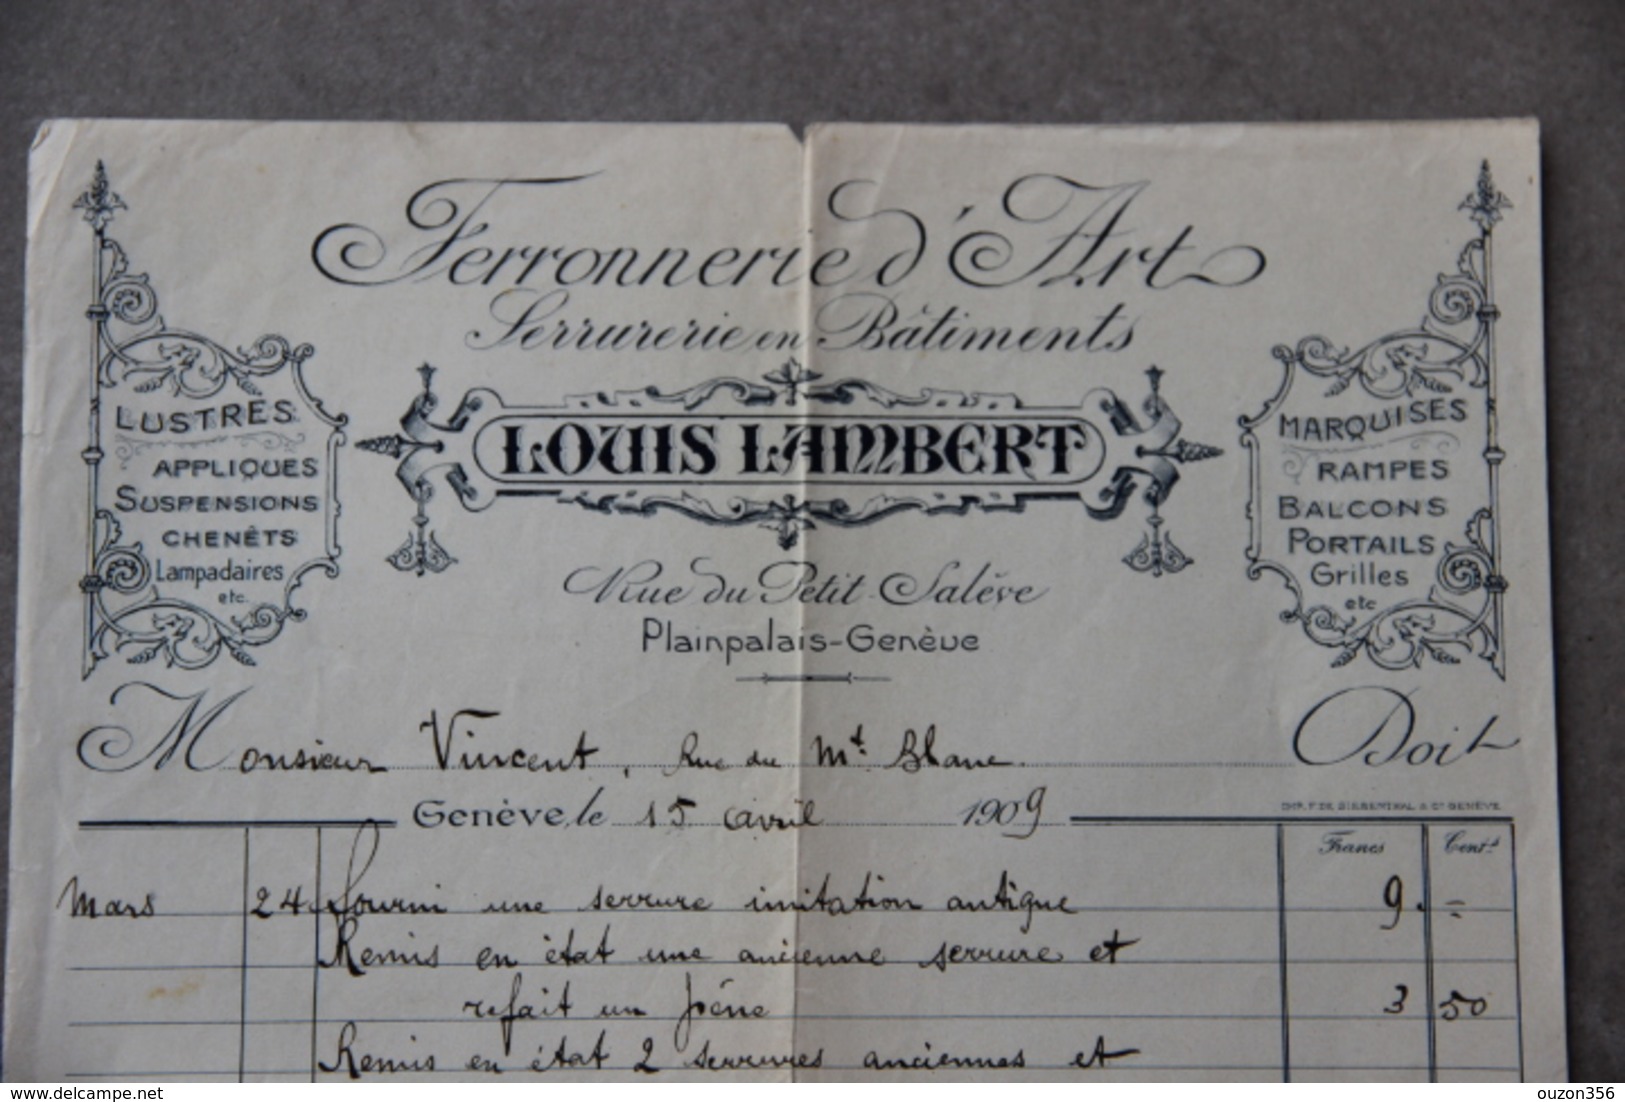 Ferronnerie d'Art
Serrurerie en Bâtiments
LOUIS LAMBERT
LUSTRES
APPLIQUES
SUSPENSIONS
CHENÊTS
Lampadaires
etc.
MARQUISES
RAMPES
BALCONS
PORTAILS
Grilles
etc
Rue du Petit-Salève
Plainpalais-Genève
Monsieur Vincent, Rue du Mt. Blanc. Doit
Genève, le 15 avril 1909
IMP. F. DE SIEBENTHAL & Cº GENÈVE
Francs Cent.s
Mars 24. Fourni une serrure imitation antique 9. =
Remis en état une ancienne serrure et
refait un pêne 3 50
Remis en état 2 serrures anciennes et
www.delcampe.net
ouzon356